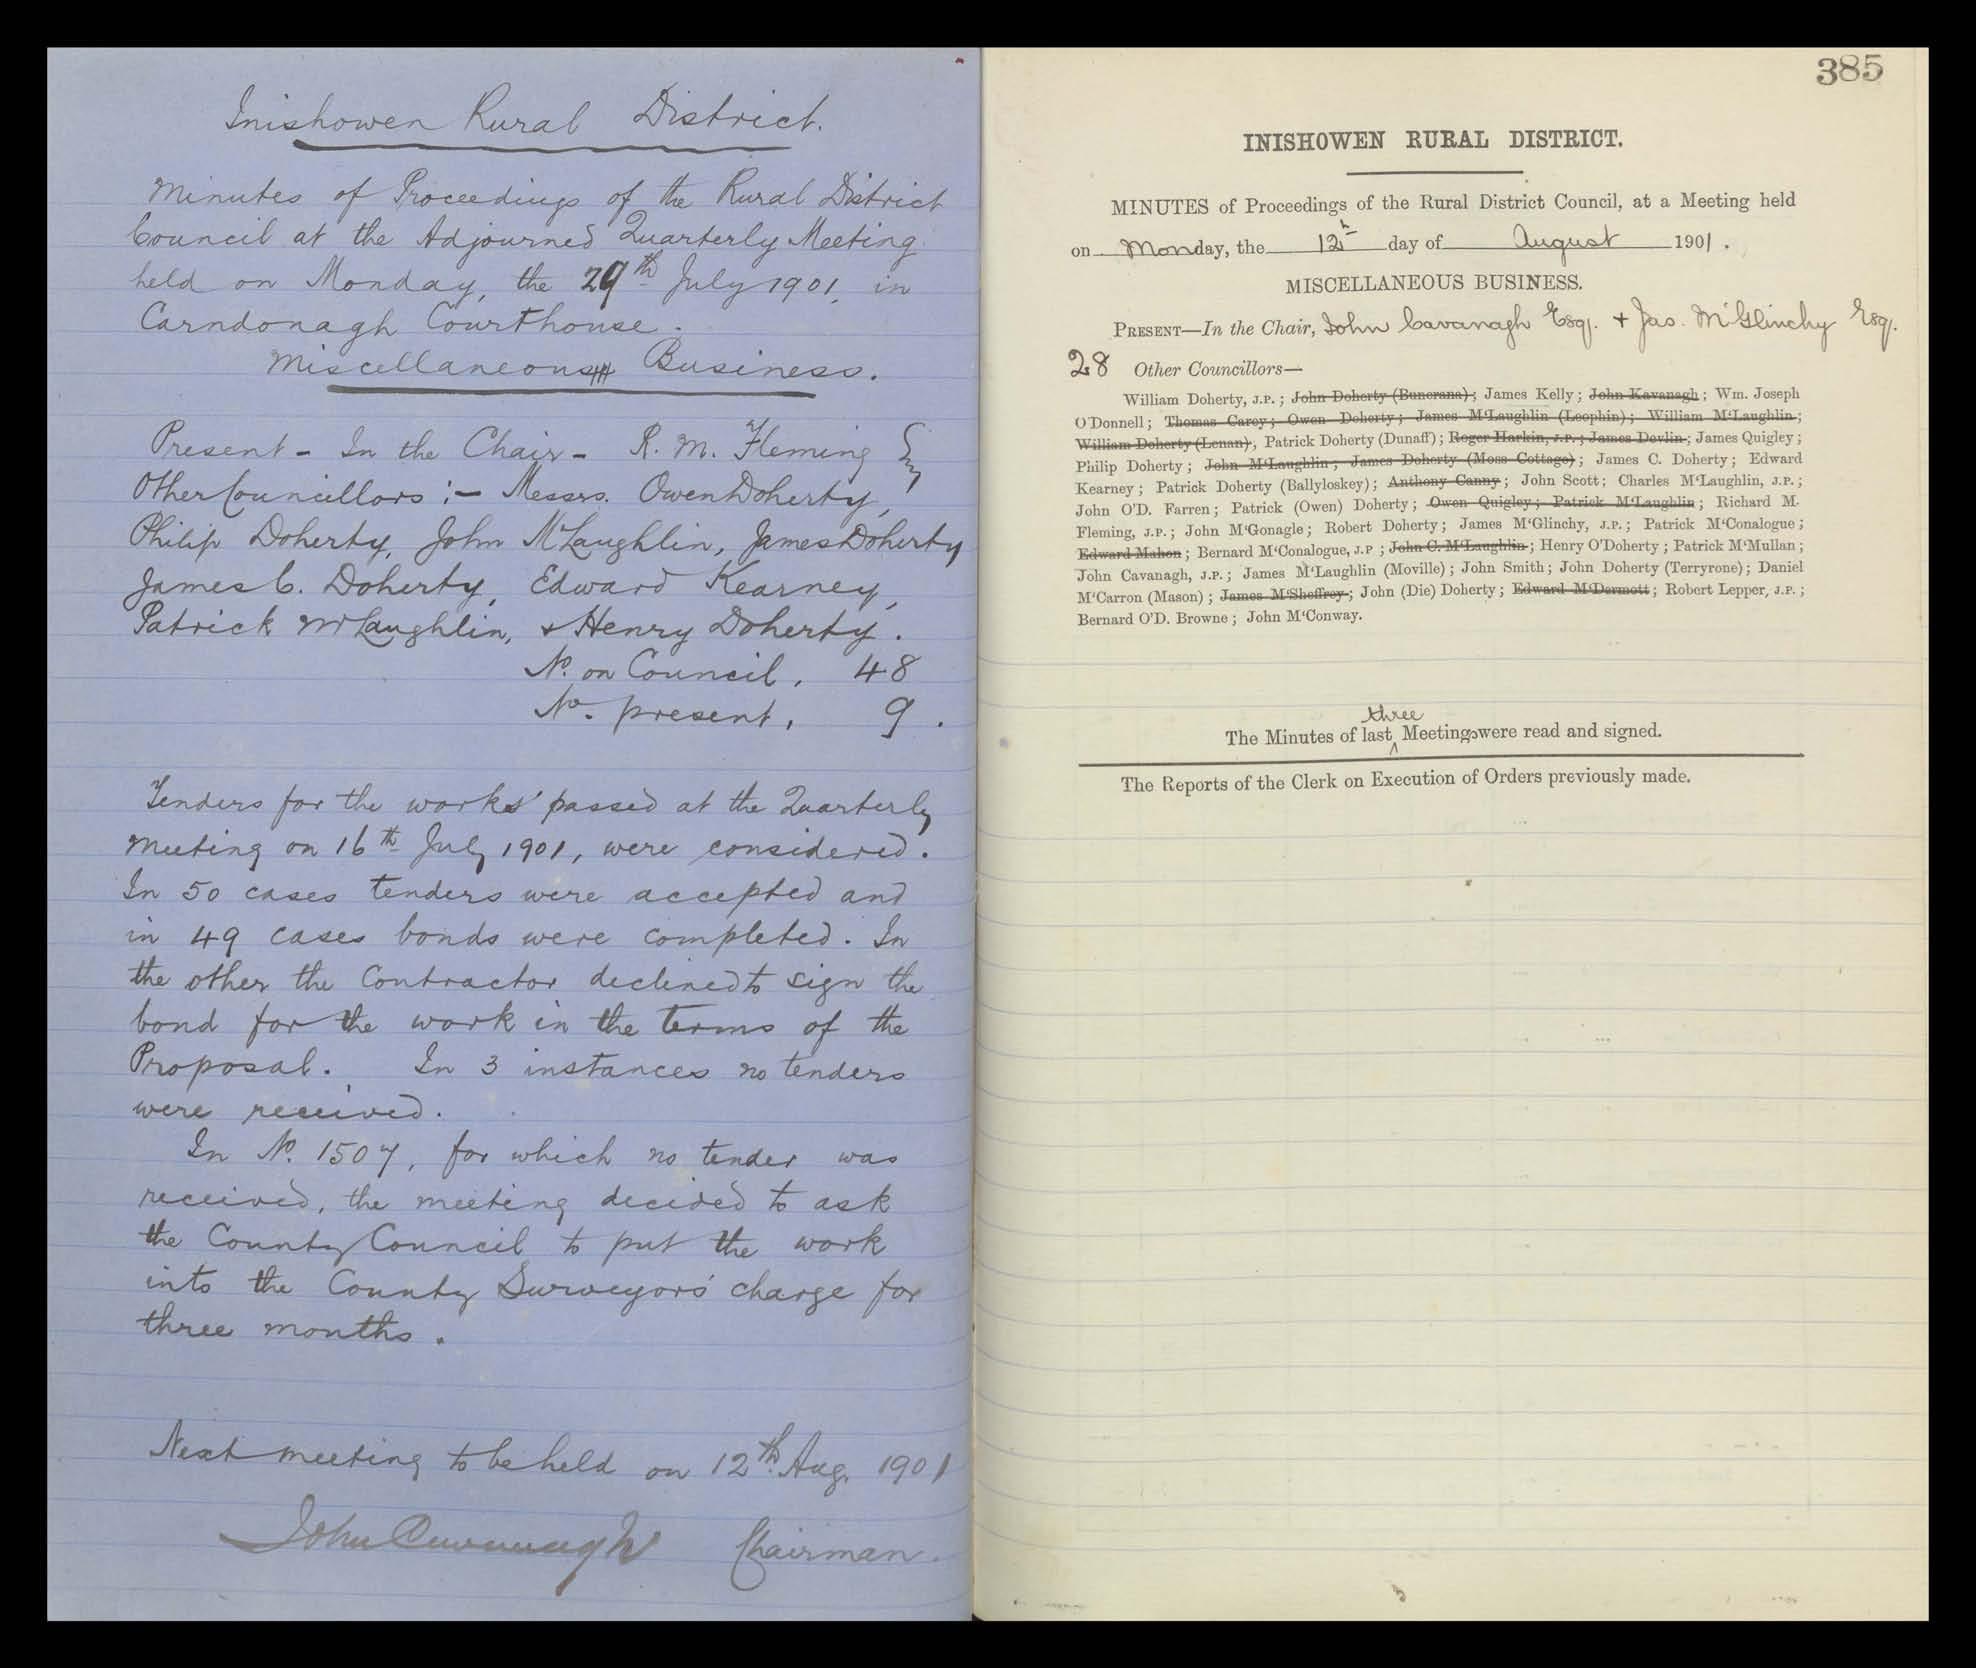 Inishowen Rural District.
Minutes of Proceedings of the Rural District
Council at the Adjourned Quarterly Meeting
held on Monday, the 29th July 1901, in
Carndonagh Courthouse.
Miscellaneous Business.
Present - In the Chair - R. M. Fleming Esq
Other Councillors :- Messrs. Owen Doherty,
Philip Doherty, John McLaughlin, James Doherty
James C. Doherty, Edward Kearney,
Patrick McLaughlin, & Henry Doherty.
No. on Council, 48
No. present, 9.
Tenders for the works passed at the Quarterly
Meeting on 16th July 1901, were considered.
In 50 cases tenders were accepted and
in 49 cases bonds were completed. In
the other the Contractor declined to sign the
bond for the work in the terms of the
Proposal. In 3 instances no tenders
were received.
In No. 1507, for which no tender was
received, the meeting decided to ask
the County Council to put the work
into the County Surveyors' charge for
three months.
Next meeting to be held on 12th Aug. 1901
John Cavanagh Chairman.
385
INISHOWEN RURAL DISTRICT.
MINUTES of Proceedings of the Rural District Council, at a Meeting held
on Monday, the 12th day of August 1901.
MISCELLANEOUS BUSINESS.
PRESENT—In the Chair, John Cavanagh Esq. + Jas. McGlinchy Esq.
28 Other Councillors—
William Doherty, J.P.; John Doherty (Buncrana); James Kelly; John Kavanagh; Wm. Joseph
O'Donnell; Thomas Carey; Owen Doherty; James M'Laughlin (Leophin); William M'Laughlin;
William Doherty (Lenan), Patrick Doherty (Dunaff); Roger Harkin, J.P.; James Devlin; James Quigley;
Philip Doherty; John M'Laughlin; James Doherty (Moss Cottage); James C. Doherty; Edward
Kearney; Patrick Doherty (Ballyloskey); Anthony Canny; John Scott; Charles M'Laughlin, J.P.;
John O'D. Farren; Patrick (Owen) Doherty; Owen Quigley; Patrick M'Laughlin; Richard M.
Fleming, J.P.; John M'Gonagle; Robert Doherty; James M'Glinchy, J.P.; Patrick M'Conalogue;
Edward Mahon; Bernard M'Conalogue, J.P; John C. M'Laughlin; Henry O'Doherty; Patrick M'Mullan;
John Cavanagh, J.P.; James M'Laughlin (Moville); John Smith; John Doherty (Terryrone); Daniel
M'Carron (Mason); James M'Sheffrey; John (Die) Doherty; Edward M'Dermott; Robert Lepper, J.P.;
Bernard O'D. Browne; John M'Conway.
The Minutes of last three Meetings were read and signed.
The Reports of the Clerk on Execution of Orders previously made.